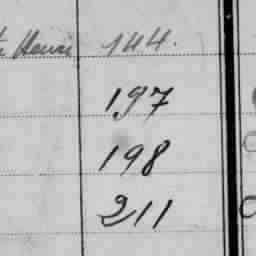 Henri 144.
197
198
211